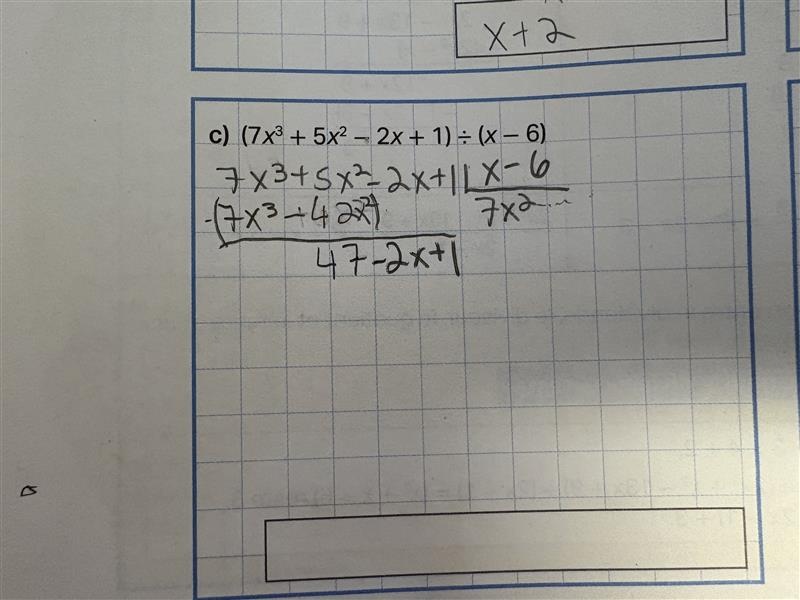 x+2
c) (7x³ + 5x² – 2x + 1) ÷ (x – 6)
7x³+5x²-2x+1 | x-6
-(7x³-42x²) 7x²...
47-2x+1